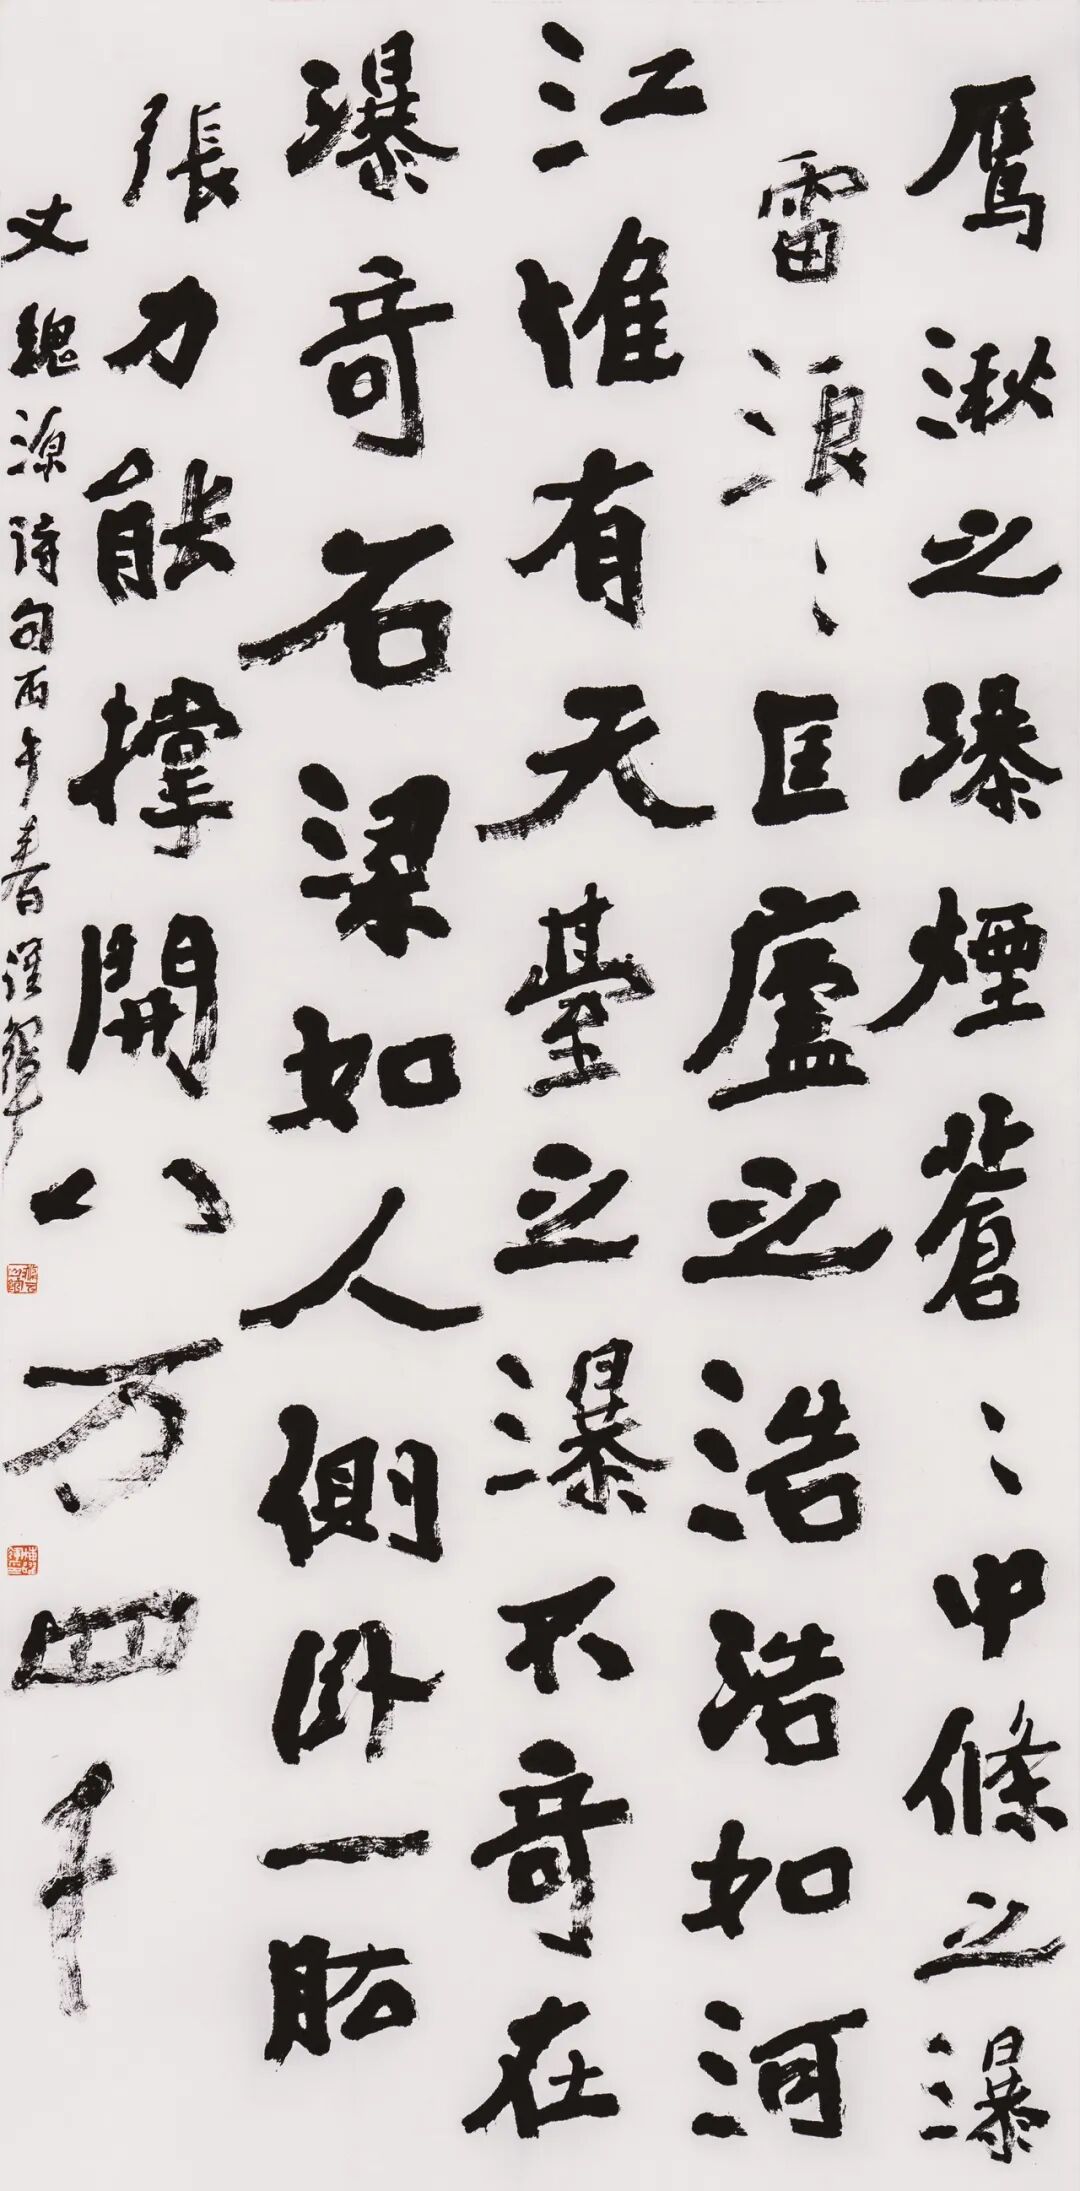 鴈湫之瀑煙蒼〻中條之瀑
雷浪〻匡廬之浩浩如河
江惟有天臺之瀑不奇在
瀑奇石梁如人側卧一肱
張力能撑開八万四千
丈魏源詩句丙午春